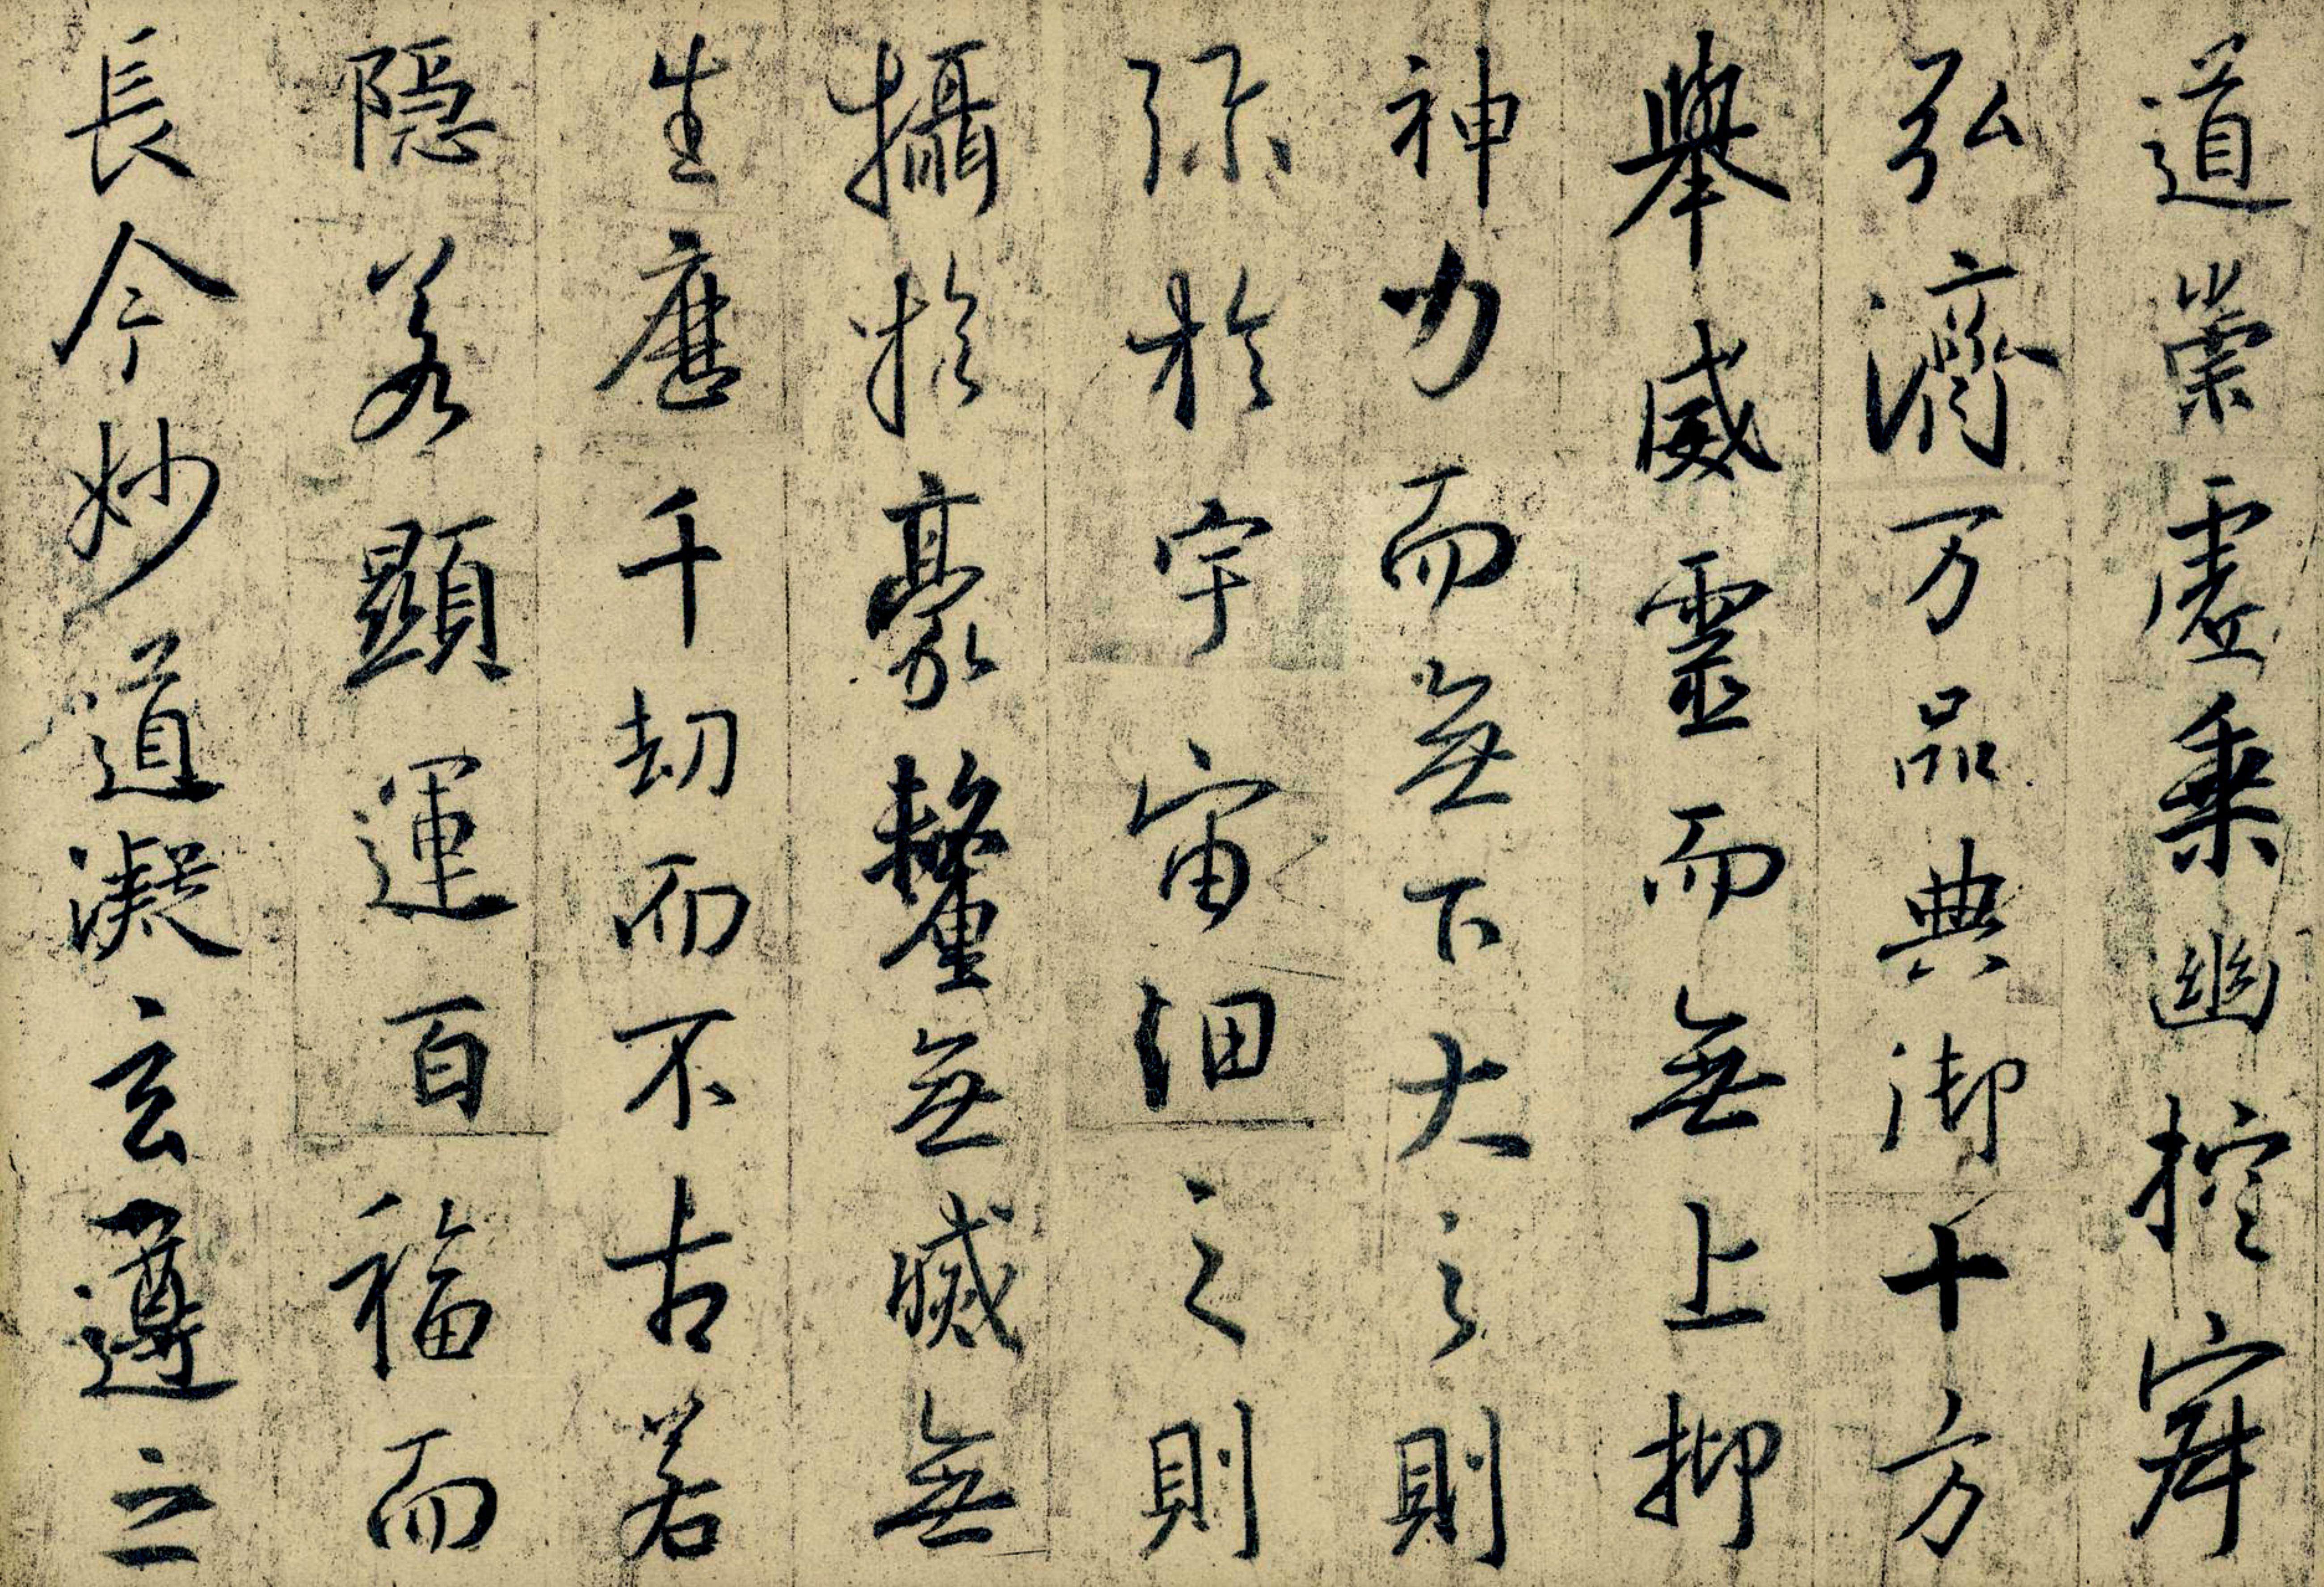 道崇虛乘幽控寂
弘濟万品典御十方
舉威靈而無上抑
神力而無下大之則
弥於宇宙細之則
攝於豪氂無滅無
生歷千劫而不古若
隱若顯運百福而
長今妙道凝玄遵之